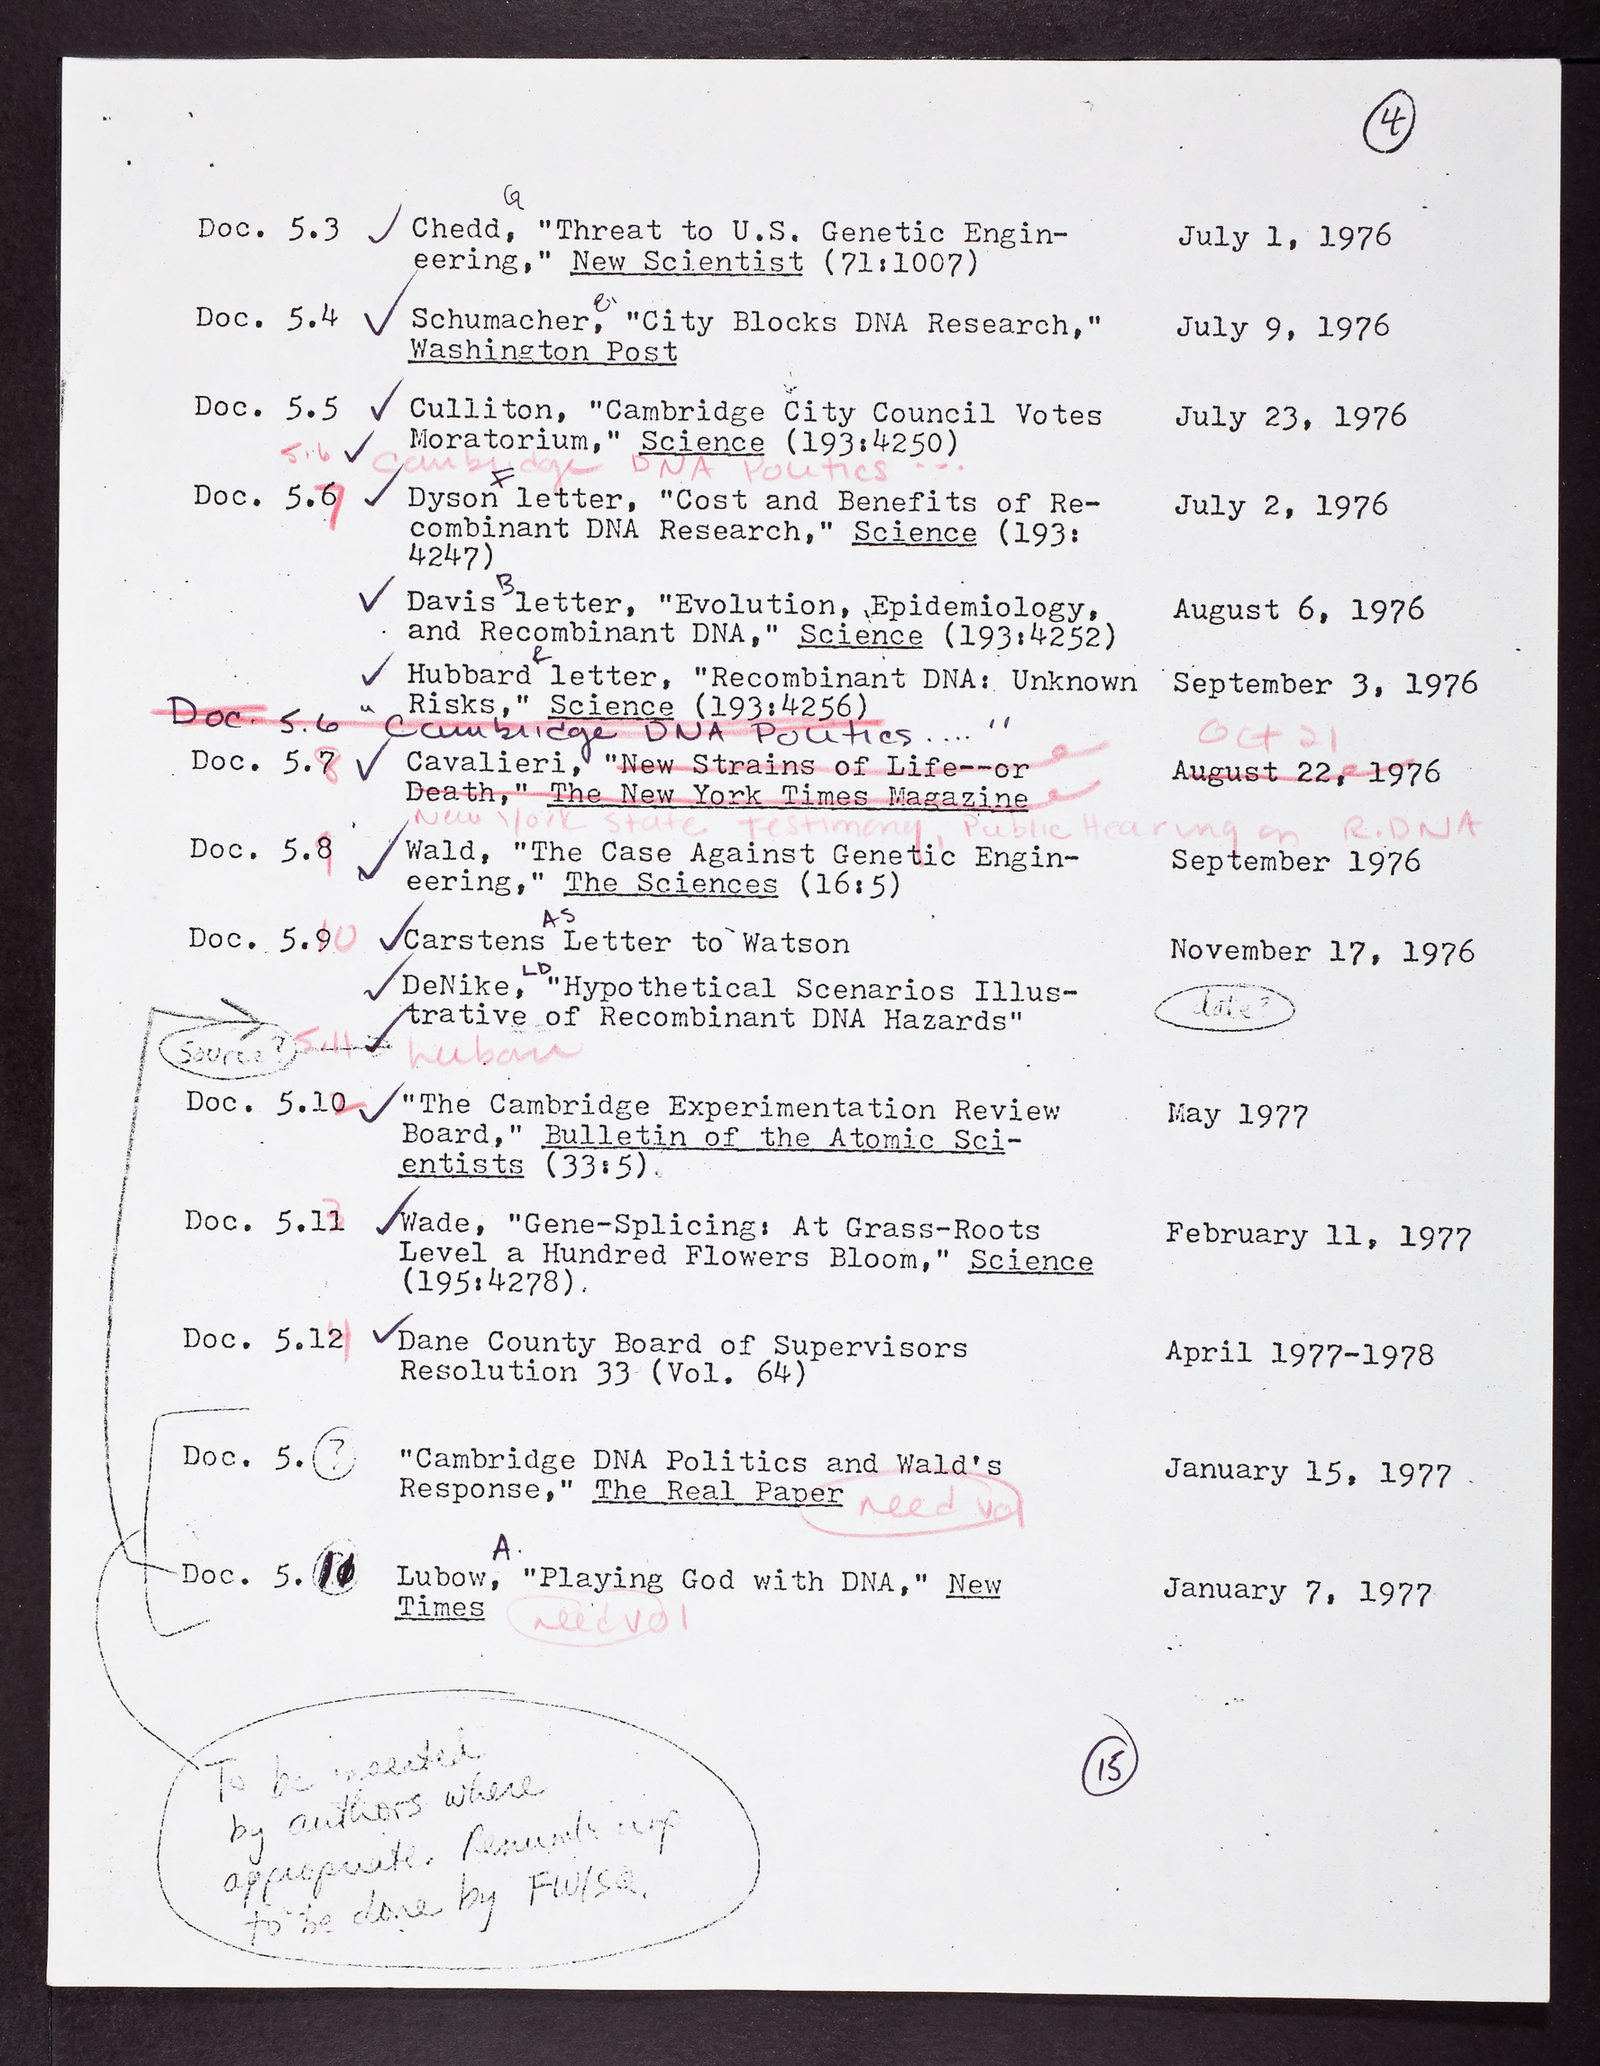 4
G
Doc. 5.3 ✓ Chedd, "Threat to U.S. Genetic Engin- July 1, 1976
eering," New Scientist (71:1007)
Doc. 5.4 ✓ Schumacher, "City Blocks DNA Research," July 9, 1976
Washington Post
Doc. 5.5 ✓ Culliton, "Cambridge City Council Votes July 23, 1976
Moratorium," Science (193:4250)
5.6 ✓ Cambridge DNA Politics ...
F
Doc. 5.6 7 ✓ Dyson letter, "Cost and Benefits of Re- July 2, 1976
combinant DNA Research," Science (193:
4247)
B
✓ Davis letter, "Evolution, Epidemiology, August 6, 1976
and Recombinant DNA," Science (193:4252)
R
✓ Hubbard letter, "Recombinant DNA: Unknown September 3, 1976
Risks," Science (193:4256)
Doc. 5.6 "Cambridge DNA Politics...."
Oct 21
Doc. 5.7 8 ✓ Cavalieri, "New Strains of Life--or August 22, 1976
Death," The New York Times Magazine
New York State Testimony, Public Hearing on R.DNA
Doc. 5.8 9 ✓ Wald, "The Case Against Genetic Engin- September 1976
eering," The Sciences (16:5)
AS
Doc. 5.9 10 ✓ Carstens Letter to Watson November 17, 1976
LD
✓ DeNike, "Hypothetical Scenarios Illus- date?
trative of Recombinant DNA Hazards"
Source? 5.11 ✓
Doc. 5.10 2 ✓ "The Cambridge Experimentation Review May 1977
Board," Bulletin of the Atomic Sci-
entists (33:5).
Doc. 5.11 3 ✓ Wade, "Gene-Splicing: At Grass-Roots February 11, 1977
Level a Hundred Flowers Bloom," Science
(195:4278).
Doc. 5.12 4 ✓ Dane County Board of Supervisors April 1977-1978
Resolution 33 (Vol. 64)
Doc. 5.? "Cambridge DNA Politics and Wald's January 15, 1977
Response," The Real Paper need vol
A.
Doc. 5. Lubow, "Playing God with DNA," New January 7, 1977
Times need vol
15
To be inserted
by authors where
appropriate. Renumbering
to be done by FW/SQ.